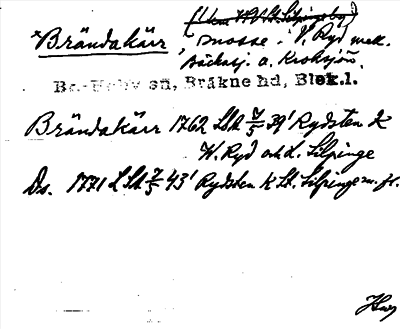 *Brändakärr, mosse i V. Ryd mell.
Bäckasj. o. Kroksjön.
Br.-Hoby sn, Bräkne hd, Blek.l.
Brändakärr 1762 LSA 7/5 39' Rydsten K
W. Ryd och L. Silpinge
Ds. 1771 LSA 7/5 43' Rydsten K St. Silpinge m. fl.